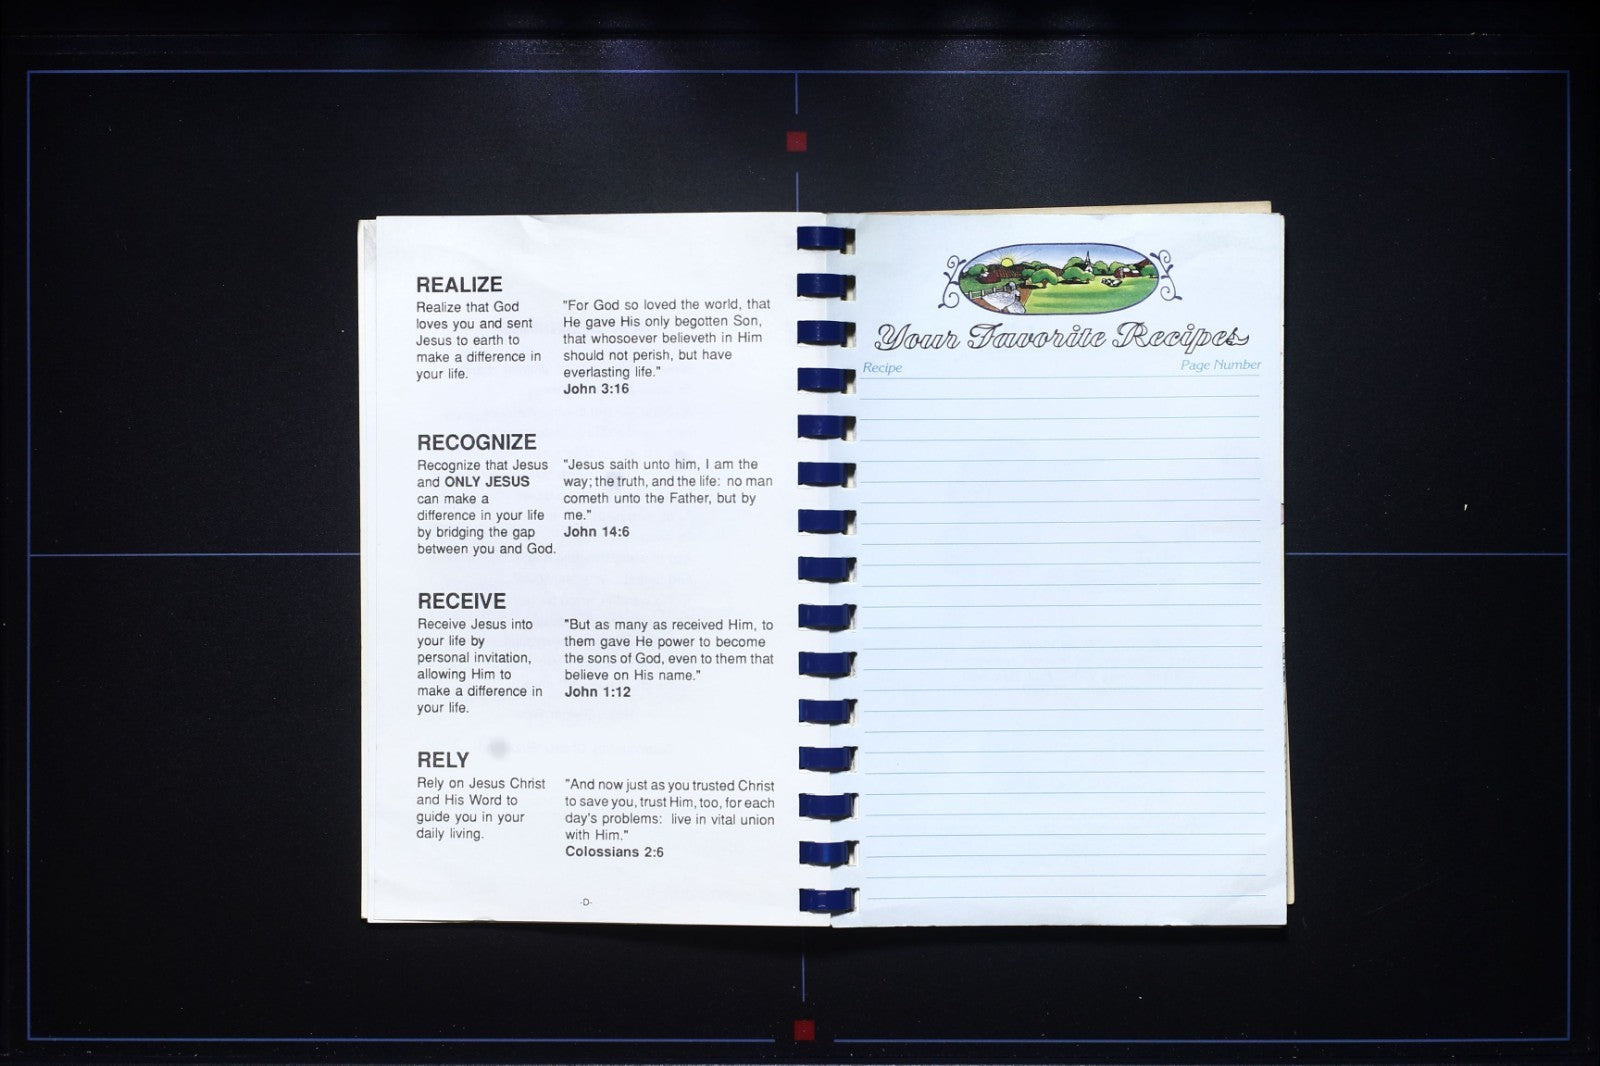 REALIZE
Realize that God
loves you and sent
Jesus to earth to
make a difference in
your life.
"For God so loved the world, that
He gave His only begotten Son,
that whosoever believeth in Him
should not perish, but have
everlasting life."
John 3:16
RECOGNIZE
Recognize that Jesus
and ONLY JESUS
can make a
difference in your life
by bridging the gap
between you and God.
"Jesus saith unto him, I am the
way; the truth, and the life: no man
cometh unto the Father, but by
me."
John 14:6
RECEIVE
Receive Jesus into
your life by
personal invitation,
allowing Him to
make a difference in
your life.
"But as many as received Him, to
them gave He power to become
the sons of God, even to them that
believe on His name."
John 1:12
RELY
Rely on Jesus Christ
and His Word to
guide you in your
daily living.
"And now just as you trusted Christ
to save you, trust Him, too, for each
day's problems: live in vital union
with Him."
Colossians 2:6
-D-
Your Favorite Recipes
Recipe Page Number